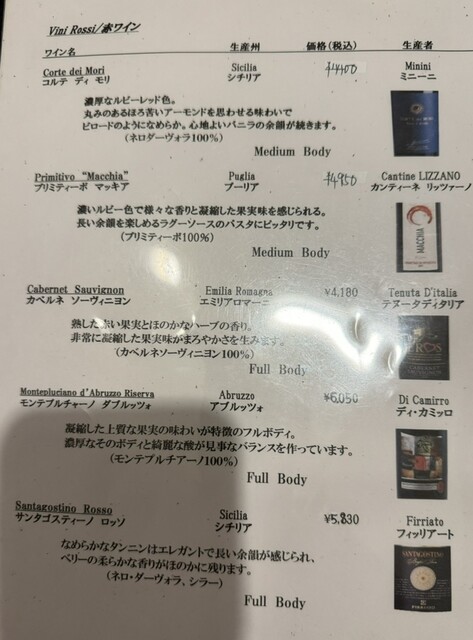 Vini Rossi/赤ワイン
ワイン名 生産州 価格(税込) 生産者
Corte dei Mori Sicilia ¥4400 Minini
コルテ ディ モリ シチリア ミニーニ
濃厚なルビーレッド色。
丸みのあるほろ苦いアーモンドを思わせる味わいで
ビロードのようになめらか。心地よいバニラの余韻が続きます。
(ネロダーヴォラ100%)
Medium Body
Primitivo "Macchia" Puglia ¥4950 Cantine LIZZANO
プリミティーボ マッキア プーリア カンティーネ リッツァーノ
濃いルビー色で様々な香りと凝縮した果実味を感じられる。
長い余韻を楽しめるラグーソースのパスタにピッタリです。
(プリミティーボ100%)
MACCHIA
Medium Body
Cabernet Sauvignon Emilia Romagna ¥4,180 Tenuta D'italia
カベルネ ソーヴィニヨン エミリアロマーニ テヌータディタリア
熟した赤い果実とほのかなハーブの香り。
非常に凝縮した果実味がまろやかさを生みます。
(カベルネソーヴィニヨン100%)
Full Body
Montepluciano d'Abruzzo Riserva Abruzzo ¥6,050 Di Camirro
モンテプルチャーノ ダブルッツォ アブルッツォ ディ・カミッロ
凝縮した上質な果実の味わいが特徴のフルボディ。
濃厚なそのボディと綺麗な酸が見事なバランスを作っています。
(モンテプルチアーノ100%)
Full Body
Santagostino Rosso Sicilia ¥5,830 Firriato
サンタゴスティーノ ロッソ シチリア フィッリアート
なめらかなタンニンはエレガントで長い余韻が感じられ、
ベリーの柔らかな香りがほのかに残ります。
(ネロ・ダーヴォラ、シラー)
SANTAGOSTINO
Full Body